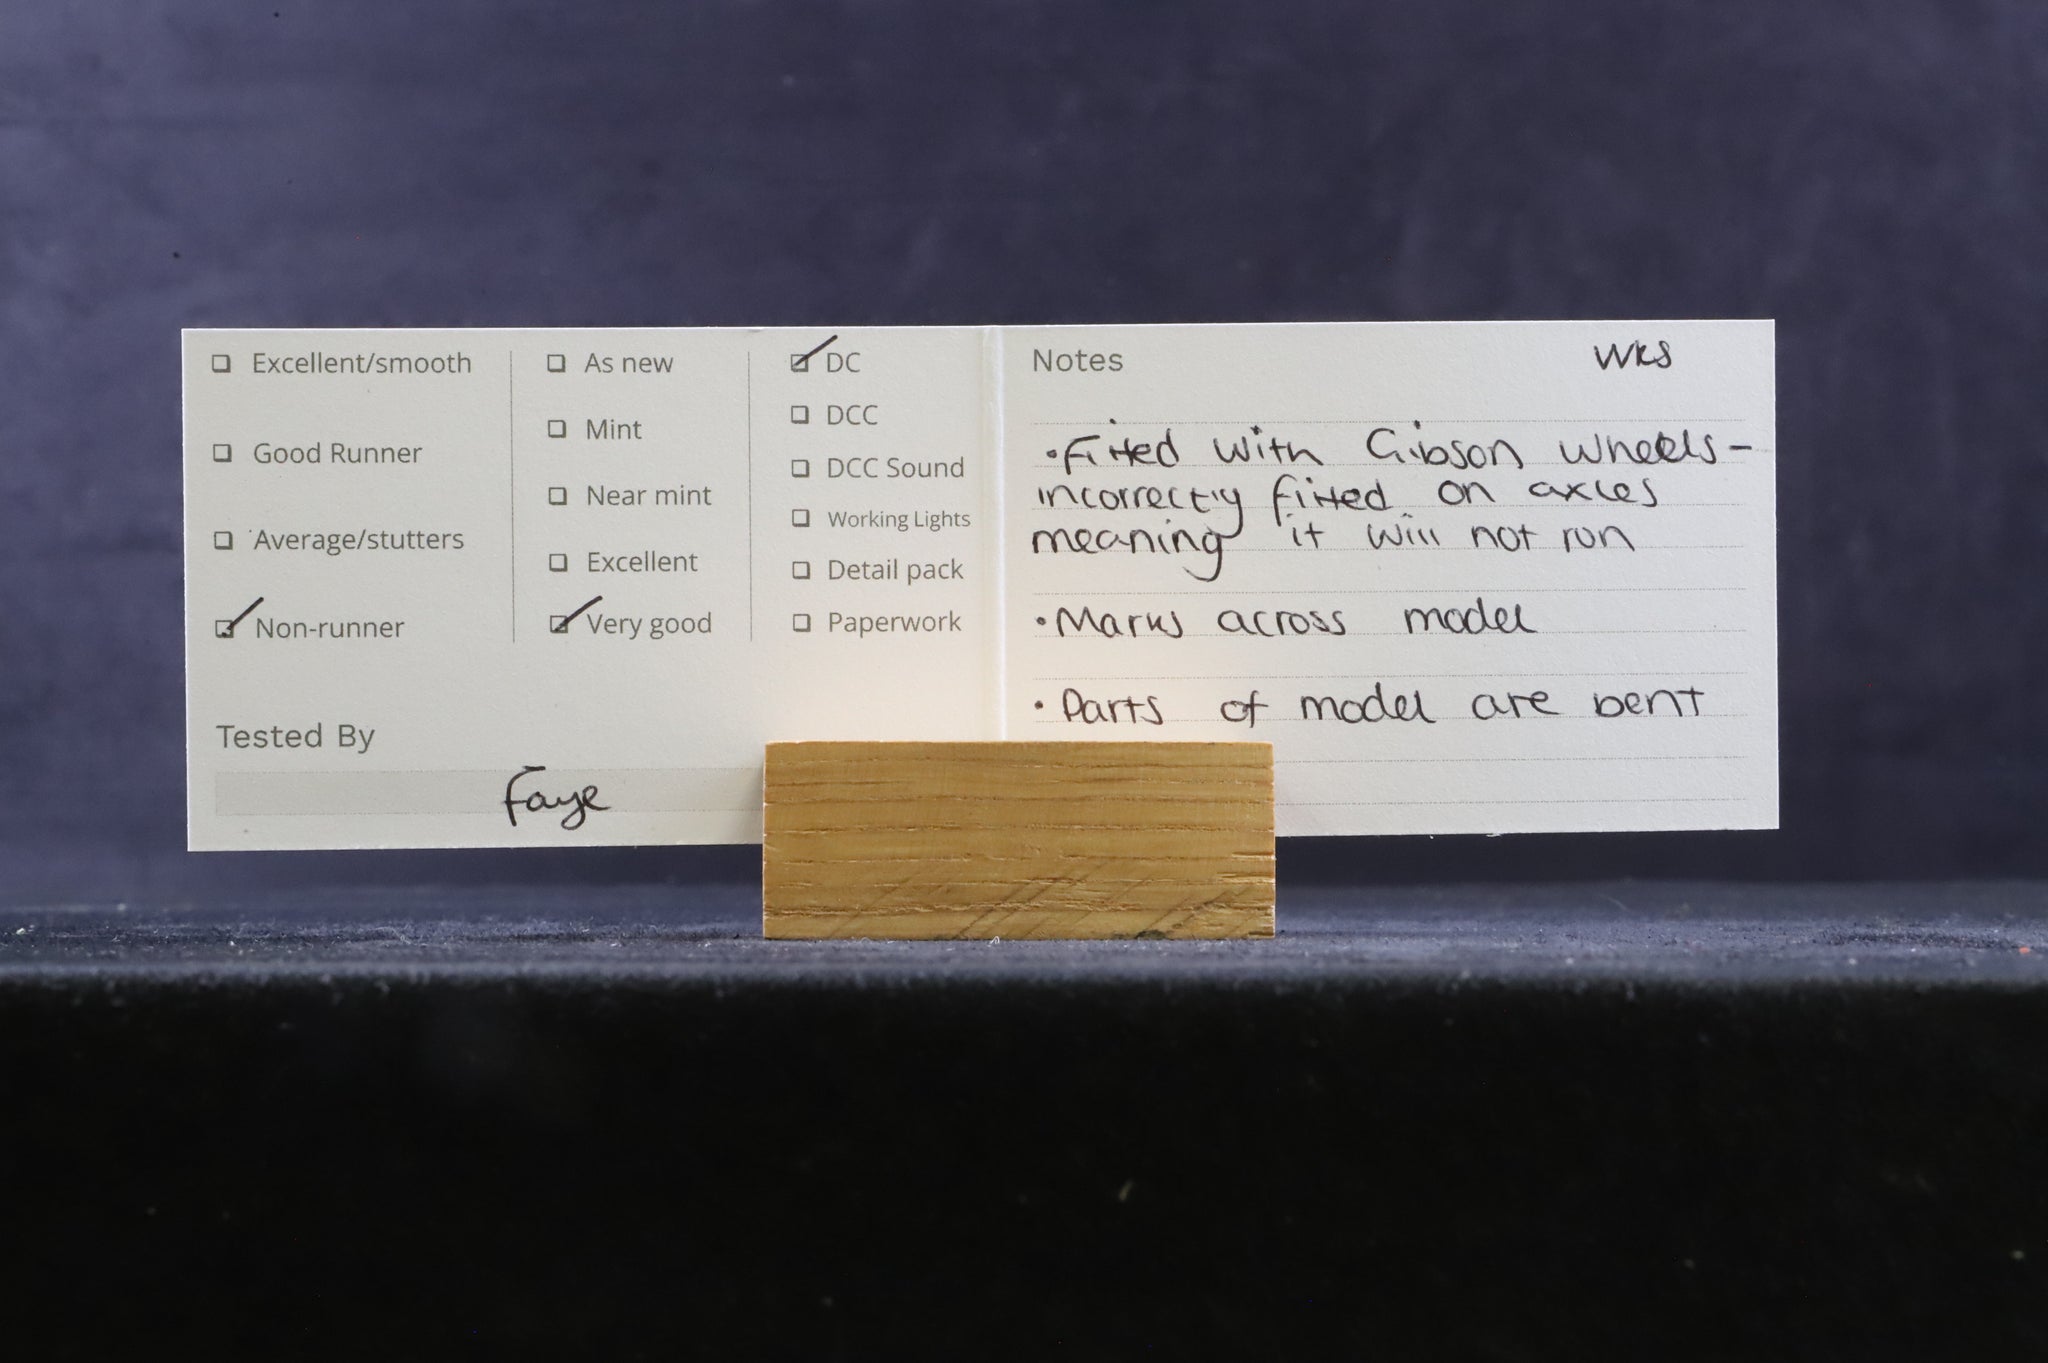 ☐ Excellent/smooth
☐ Good Runner
☐ Average/stutters
☑ Non-runner
☐ As new
☐ Mint
☐ Near mint
☐ Excellent
☑ Very good
☑ DC
☐ DCC
☐ DCC Sound
☐ Working Lights
☐ Detail pack
☐ Paperwork
Tested By
Faye
Notes WKS
• Fitted with Gibson wheels -
incorrectly fitted on axles
meaning it will not run
• Marks across model
• Parts of model are bent